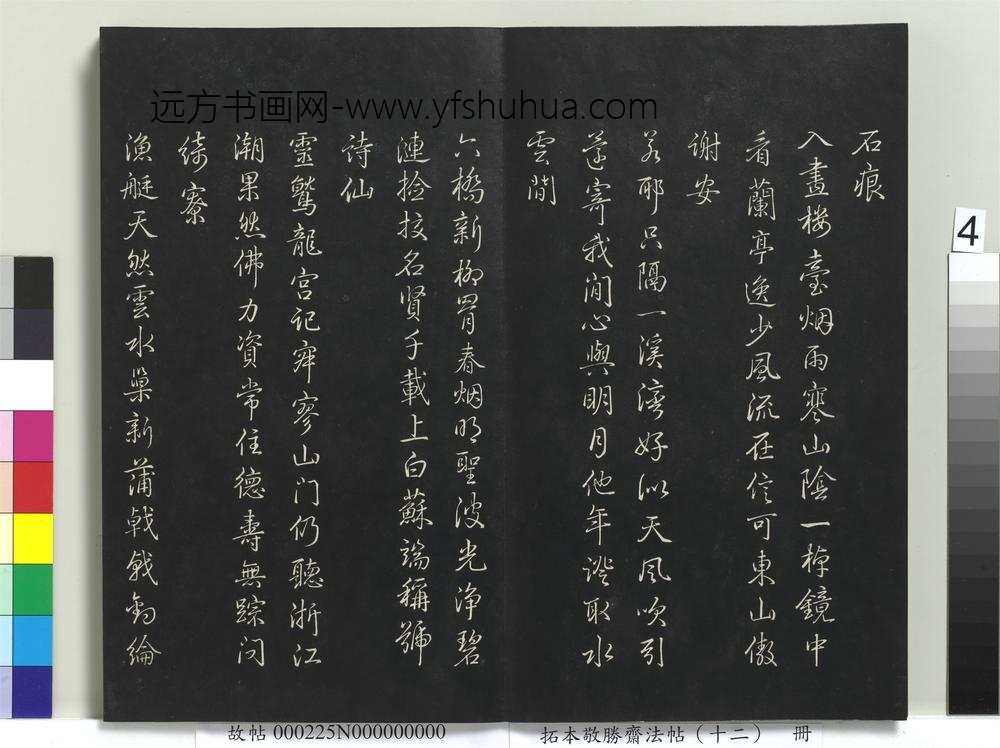 远方书画网-www.yfshuhua.com
石痕
入畫楼臺烟雨寒山陰一棹鏡中
看蘭亭逸少風流在信可東山傲
謝安
若耶只隔一溪湾好似天风吹引
蓬寄我间心與明月他年證取水
雲间
六橋新柳罥春烟明聖波光浄碧
漣捡挍名賢千載上白蘇端稱號
诗仙
靈鷲龍宫记寂寥山门仍聽浙江
潮果然佛力資常住德壽無踪问
绮寮
漁艇天然雲水巢新蒲戢戢釣綸
4
故帖 000225N000000000
拓本敬勝齋法帖（十二） 冊